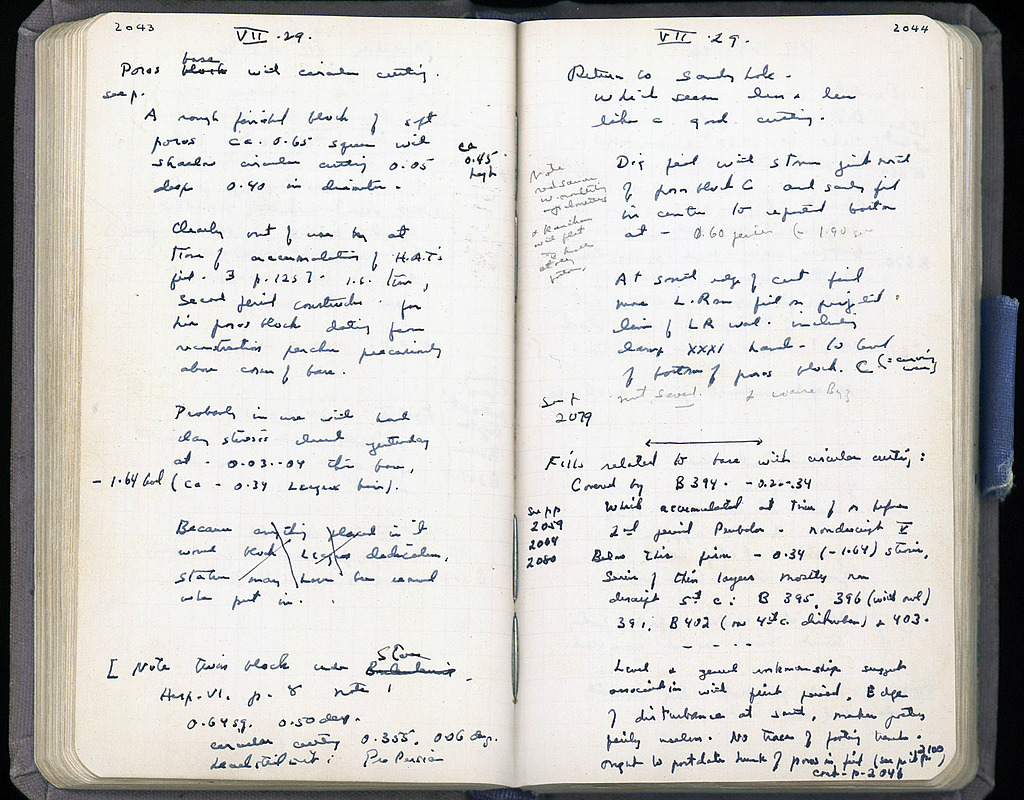 2043
VII . 29.
base
Poros block with circular cutting.
see p.
A rough finished block of soft
poros ca. 0.65 square with
shallow circular cutting 0.05
deep 0.40 in diameter.
ca
0.45
high
Clearly out of use by at
time of accumulation of H.A.T's
fill. 3 p. 1257. i.e. time,
Second period construction for
this poros block dating from
reconstruction perches precariously
above corner of base.
Probably in use with hard
clay stereo cleared yesterday
at - 0.03-.04 this base,
- 1.64 (ca - 0.34 Leagros base).
Because anything placed in it
would block Leagros dedication,
statue may have been removed
when put in.
[ Note twin block under Stoa
Hesp. VI. p. 8 note 1
0.64 sq. 0.50 deep.
circular cutting 0.355, 0.06 deep.
associated with: Pre Persian
2044
VII . 29.
Return to sandy hole -
which seems less & less
like a good cutting.
Dig fill with stones just north
of poros block C and sandy fill
in centre to reported bottom
at - 0.60 (- 1.90
Note
At south edge of cut find
more L. Rom fill on projected
line of LR wall. including
lamp XXXI handle - to level
of bottom of poros block. C
not saved. & coarse Byz
see p
2079
Fills related to base with circular cutting:
Covered by B 394. - 0.20-.34
see pp
2059
2064
2080
Which accumulated at time of or before
2nd period Peribolos - nondescript V
Below this firm - 0.34 (-1.64) stereo,
Series of thin layers mostly non
descript 5th c: B 395, 396 (with owl)
391, B 402 (on 4th c. disturbed) & 403.
- - - -
Level & general workmanship suggest
association with first period. Edge
of disturbance at south, makes pottery
fairly useless. No traces of footing trench.
ought to postdate hunk of poros in fill (see p.
cont. p. 2046